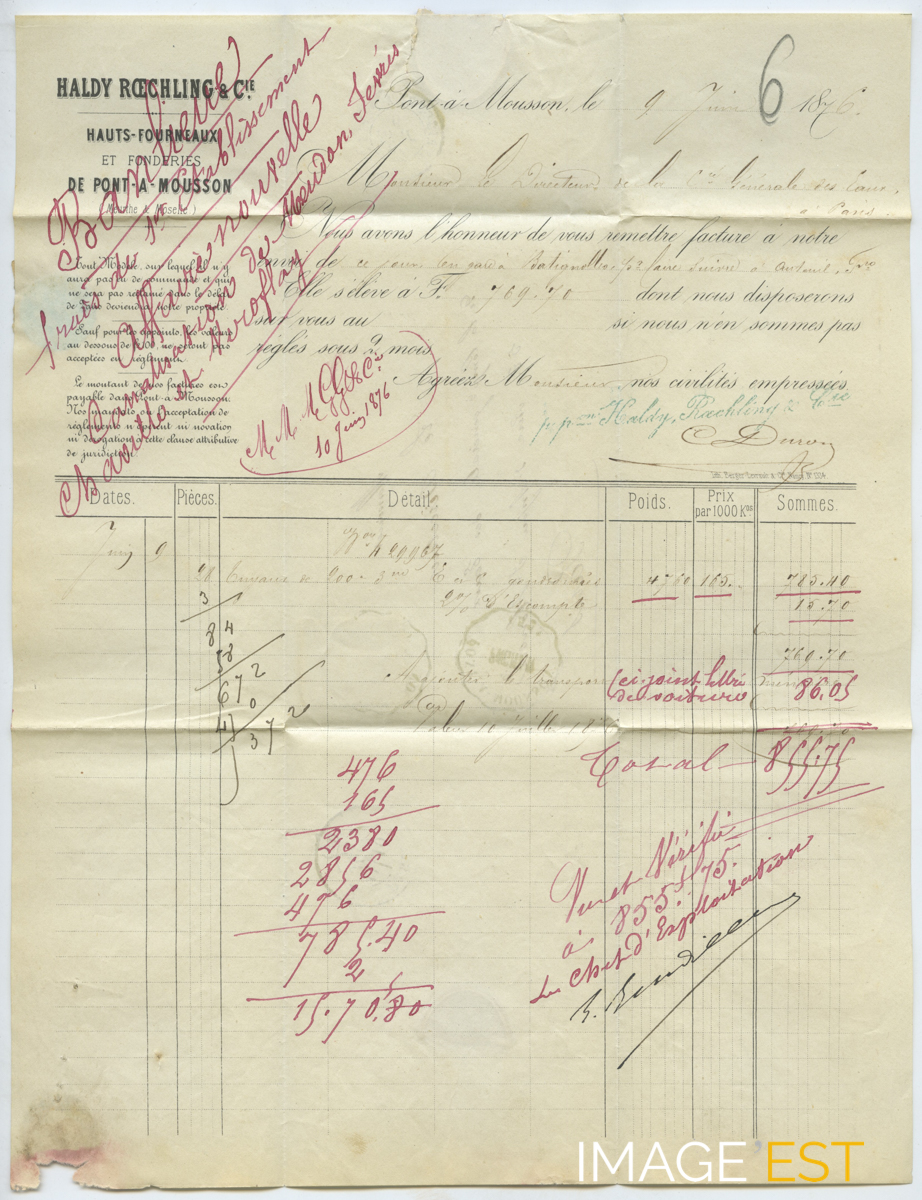 HALDY RŒCHLING & CIE
HAUTS-FOURNEAUX
ET FONDERIES
DE PONT-A-MOUSSON
(Meurthe & Moselle)
Banlieue
frais de 1er établissement
Affaire nouvelle
Canalisation de Meudon, Sèvres
Chaville et Viroflay
6
Pont-à-Mousson, le 9 Juin 1876.
Monsieur le Directeur de la Cie Générale des Eaux,
à Paris.
Nous avons l'honneur de vous remettre facture à notre
envoi de ce jour en gare à Batignolles pr faire suivre à Auteuil
Elle s'élève à F. 769.70 dont nous disposerons
sur vous au si nous n'en sommes pas
réglés sous 2 mois.
Agréez, Monsieur, nos civilités empressées.
p. pon Haldy, Rœchling & Cie
Tout Modèle, sur lequel il n'y
aura pas eu de commande et qui
ne sera pas réclamé dans le délai
de deviendra notre propriété.
Sauf pour les appoints, les valeurs
au dessous de 200, ne seront pas
acceptées en règlement.
Le montant de nos factures est
payable dans Pont-à-Mousson.
Nos mandats ou l'acceptation de
règlements n'opèrent ni novation
ni dérogation à cette clause attributive
de juridiction.
10 Juin 1876
Dates. Pièces. Détail Poids. Prix
par 1000 Kos Sommes.
Juin 9
Won 29967
28 Tuyaux de 200 - 3m E & C 4760 165. 785.40
2% d'Escompte 15.70
3
84
58
672
0
4
37 2
769.70
A ajouter le transport (ci-joint lettre
de voiture 86.05
Valeur 10 Juillet 1876
Total 855.75
476
165
2380
2856
476
785.40
2
15.70.80
Vu et Vérifié
à 855f.75.
Le Chef d'Exploitation
IMAGE EST